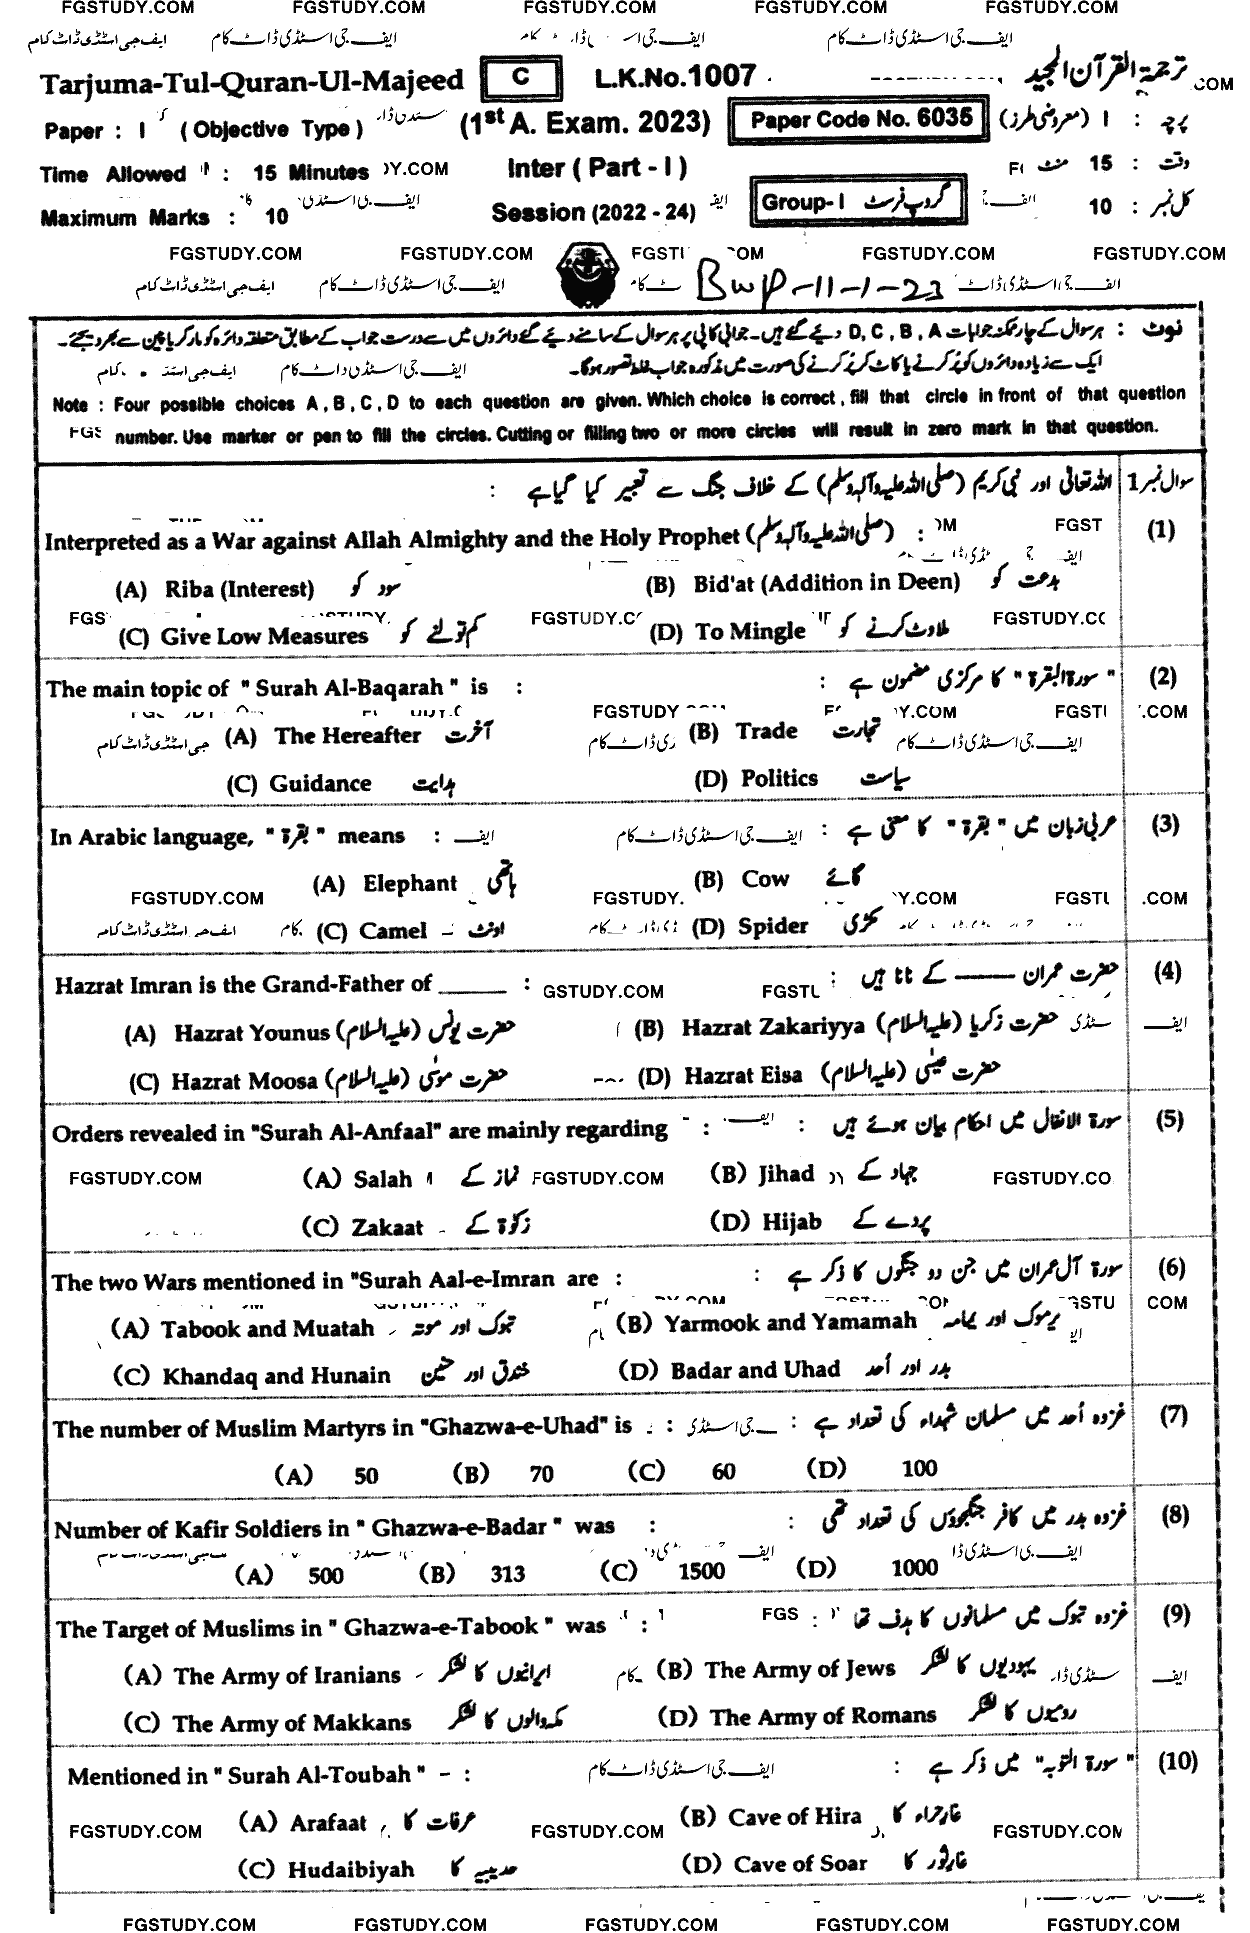 FGSTUDY.COM FGSTUDY.COM FGSTUDY.COM FGSTUDY.COM FGSTUDY.COM
ایف جی اسٹڈی ڈاٹ کام ایف جی اسٹڈی ڈاٹ کام ایف جی اسٹڈی ڈاٹ کام
Tarjuma-Tul-Quran-Ul-Majeed C L.K.No.1007 ترجمۃ القرآن المجید
Paper : I ( Objective Type ) (1st A. Exam. 2023) Paper Code No. 6035 پرچہ : I (معروضی طرز)
Time Allowed : 15 Minutes Inter ( Part - I ) وقت : 15 منٹ
Maximum Marks : 10 Session (2022 - 24) Group- I گروپ فرسٹ کل نمبر : 10
FGSTUDY.COM FGSTUDY.COM FGSTUDY.COM FGSTUDY.COM
ایف جی اسٹڈی ڈاٹ کام ایف جی اسٹڈی ڈاٹ کام Bwp-11-1-23
نوٹ : ہر سوال کے چار ممکنہ جوابات D, C, B, A دیئے گئے ہیں۔ جوابی کاپی پر ہر سوال کے سامنے دیئے گئے دائروں میں سے درست جواب کے مطابق متعلقہ دائرہ کو مارکر یا پین سے بھر دیجئے۔
ایک سے زیادہ دائروں کو پُر کرنے یا کاٹ کر پُر کرنے کی صورت میں مذکورہ جواب غلط تصور ہوگا۔
Note : Four possible choices A , B , C , D to each question are given. Which choice is correct , fill that circle in front of that question
number. Use marker or pen to fill the circles. Cutting or filling two or more circles will result in zero mark in that question.
سوال نمبر 1 اللہ تعالیٰ اور نبی کریم (صلی اللہ علیہ وآلہ وسلم) کے خلاف جنگ سے تعبیر کیا گیا ہے :
(1) Interpreted as a War against Allah Almighty and the Holy Prophet (صلی اللہ علیہ وآلہ وسلم) :
(A) Riba (Interest) سود کو (B) Bid'at (Addition in Deen) بدعت کو
(C) Give Low Measures کم تولنے کو (D) To Mingle ملاوٹ کرنے کو
(2) " سورۃ البقرۃ " کا مرکزی مضمون ہے :
The main topic of " Surah Al-Baqarah " is :
(A) The Hereafter آخرت (B) Trade تجارت
(C) Guidance ہدایت (D) Politics سیاست
(3) عربی زبان میں " بقرۃ " کا معنی ہے :
In Arabic language, " بقرۃ " means :
(A) Elephant ہاتھی (B) Cow گائے
(C) Camel اونٹ (D) Spider مکڑی
(4) حضرت عمران ——— کے نانا ہیں :
Hazrat Imran is the Grand-Father of ______ :
(A) Hazrat Younus (علیہ السلام) حضرت یونس (B) Hazrat Zakariyya (علیہ السلام) حضرت زکریا
(C) Hazrat Moosa (علیہ السلام) حضرت موسیٰ (D) Hazrat Eisa (علیہ السلام) حضرت عیسیٰ
(5) سورۃ الانفال میں احکام بیان ہوئے ہیں :
Orders revealed in "Surah Al-Anfaal" are mainly regarding :
(A) Salah نماز کے (B) Jihad جہاد کے
(C) Zakaat زکوٰۃ کے (D) Hijab پردے کے
(6) سورۃ آل عمران میں جن دو جنگوں کا ذکر ہے :
The two Wars mentioned in "Surah Aal-e-Imran are :
(A) Tabook and Muatah تبوک اور موتہ (B) Yarmook and Yamamah یرموک اور یمامہ
(C) Khandaq and Hunain خندق اور حنین (D) Badar and Uhad بدر اور اُحد
(7) غزوہ اُحد میں مسلمان شہداء کی تعداد ہے :
The number of Muslim Martyrs in "Ghazwa-e-Uhad" is :
(A) 50 (B) 70 (C) 60 (D) 100
(8) غزوہ بدر میں کافر جنگجوؤں کی تعداد تھی :
Number of Kafir Soldiers in " Ghazwa-e-Badar " was :
(A) 500 (B) 313 (C) 1500 (D) 1000
(9) غزوہ تبوک میں مسلمانوں کا ہدف تھا :
The Target of Muslims in " Ghazwa-e-Tabook " was :
(A) The Army of Iranians ایرانیوں کا لشکر (B) The Army of Jews یہودیوں کا لشکر
(C) The Army of Makkans مکہ والوں کا لشکر (D) The Army of Romans رومیوں کا لشکر
(10) " سورۃ التوبہ " میں ذکر ہے :
Mentioned in " Surah Al-Toubah " - :
(A) Arafaat عرفات کا (B) Cave of Hira غارِ حراء کا
(C) Hudaibiyah حدیبیہ کا (D) Cave of Soar غارِ ثور کا
FGSTUDY.COM FGSTUDY.COM FGSTUDY.COM FGSTUDY.COM FGSTUDY.COM